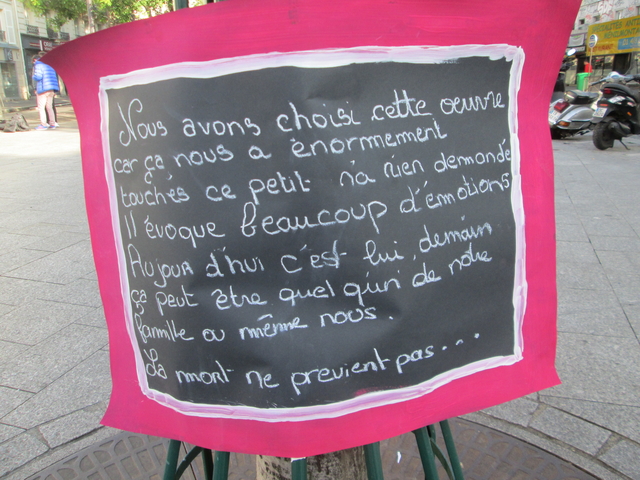 Nous avons choisi cette oeuvre
car ça nous a énormement
touchés ce petit n'a rien demandé
Il évoque beaucoup d'émotions
Aujourd'hui c'est lui, demain
ça peut être quelqu'un de notre
famille ou même nous.
La mort ne previent pas...